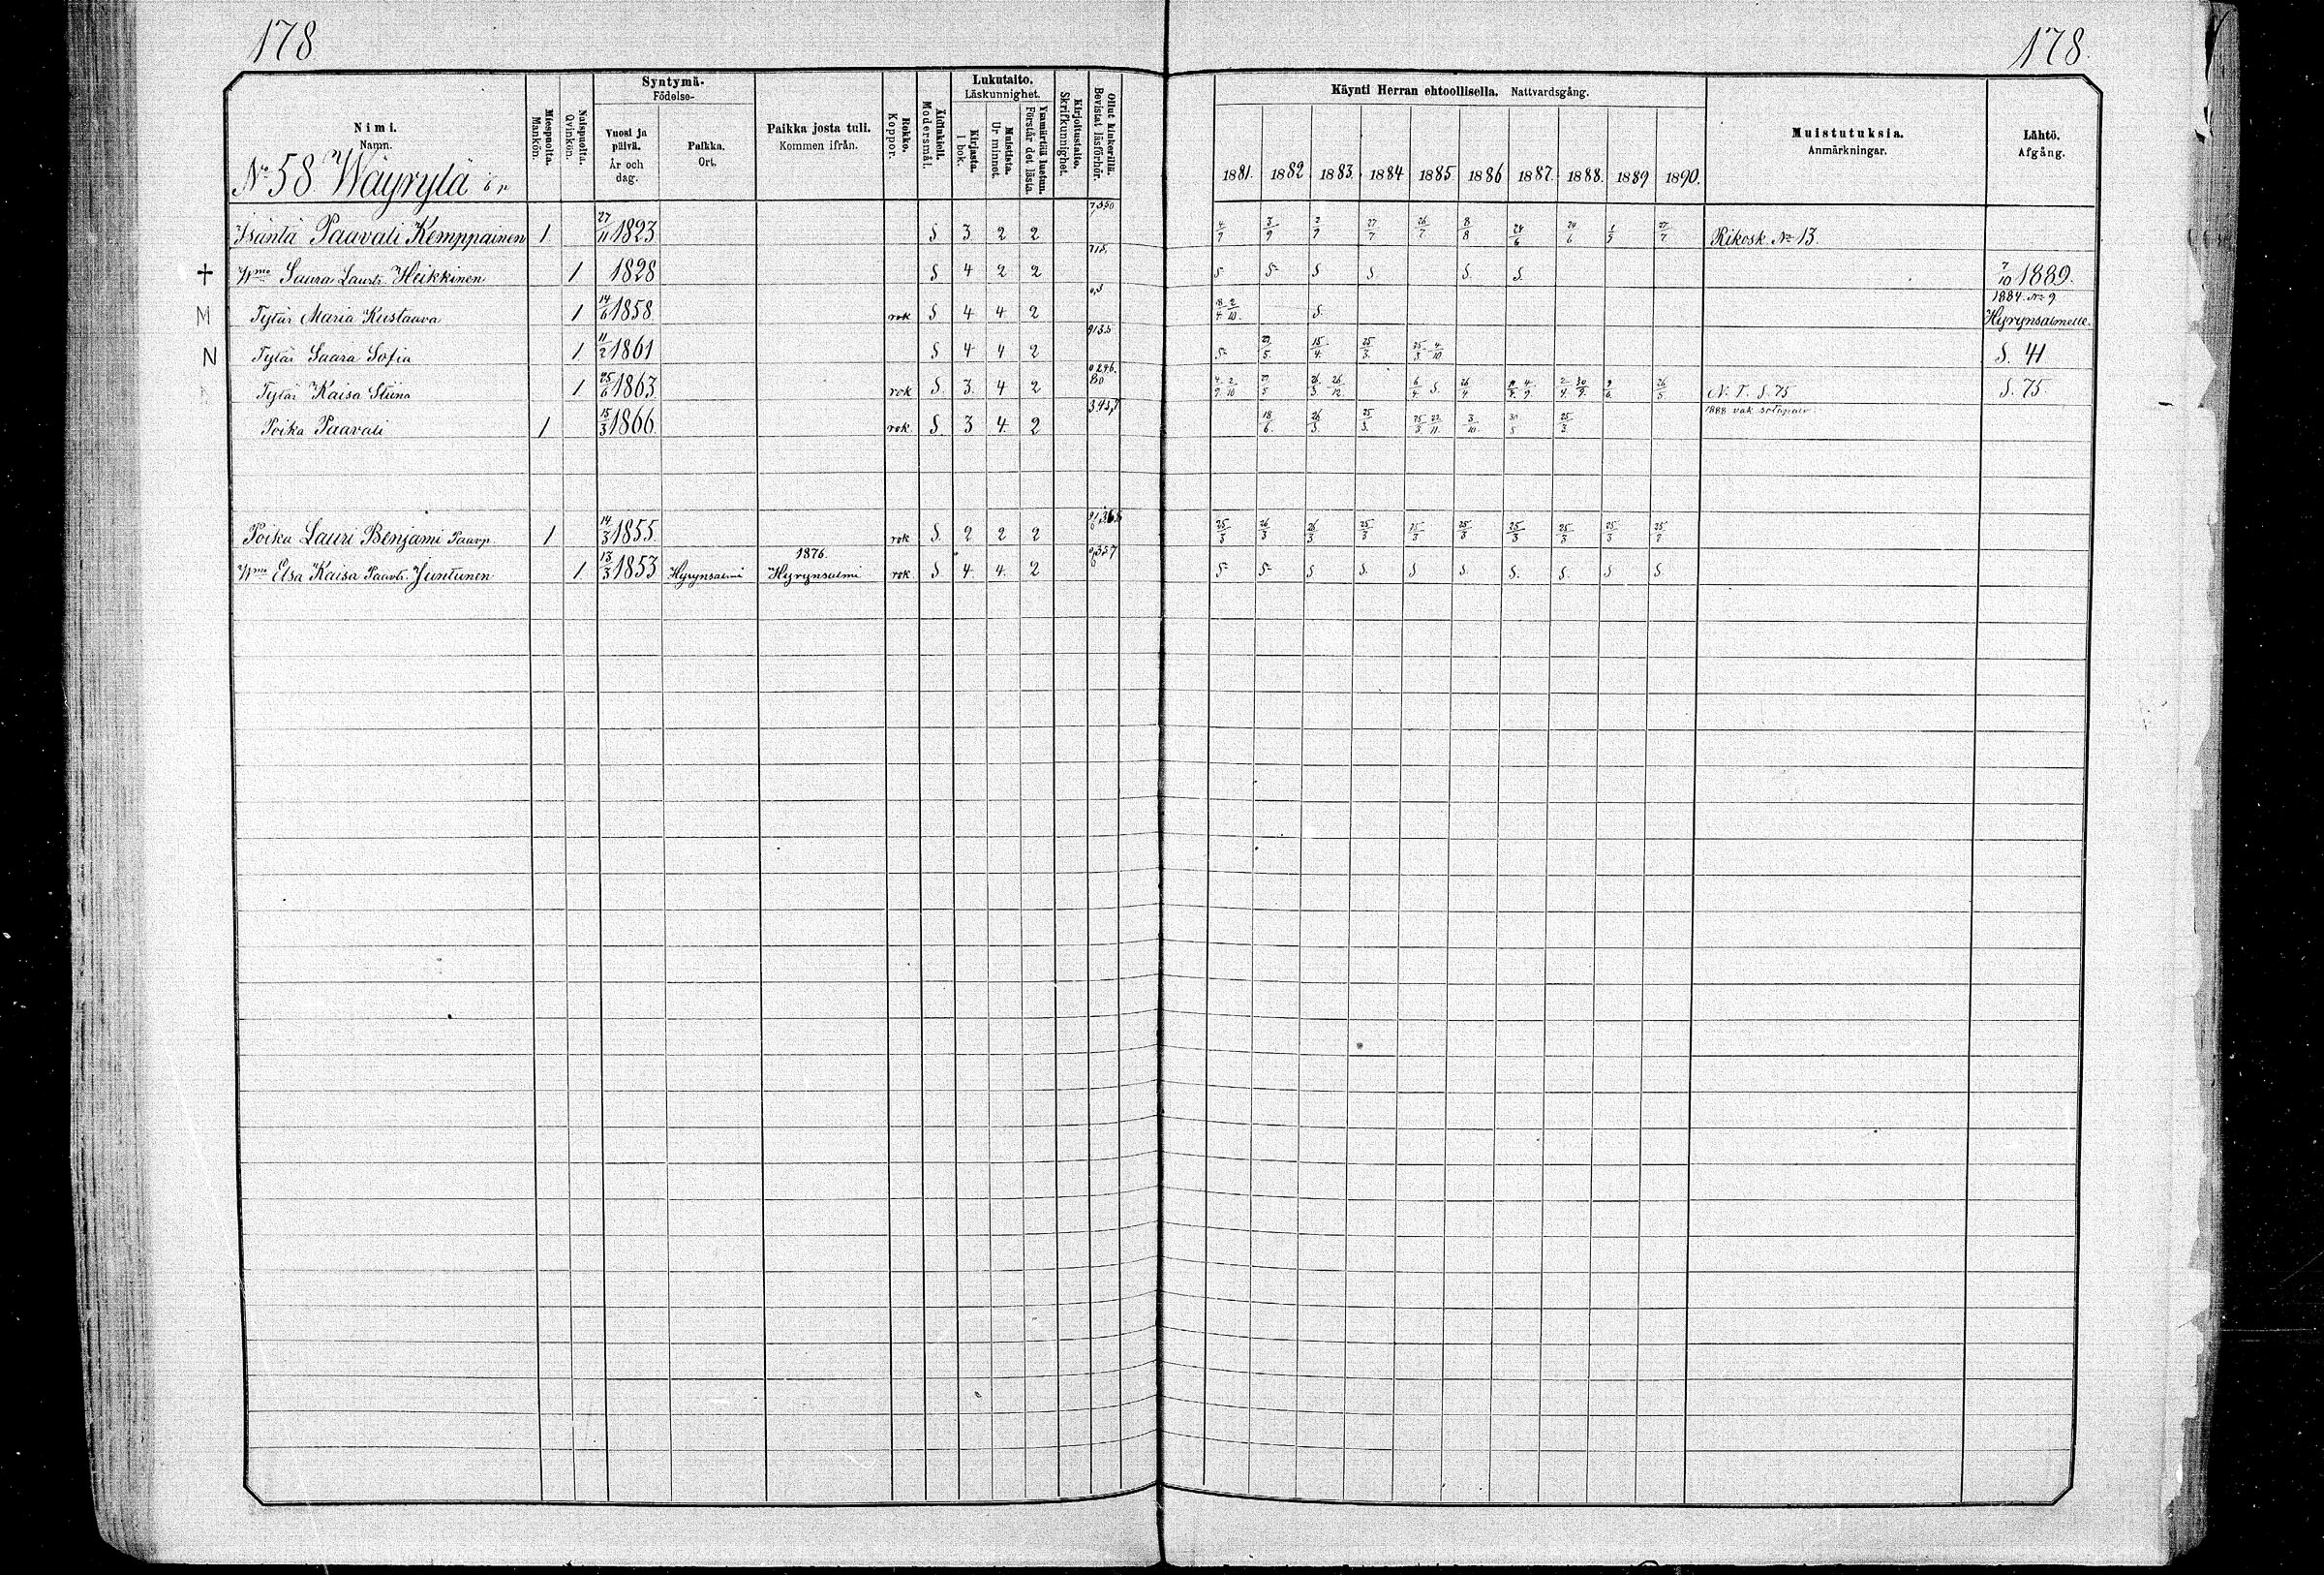 178
178.
Nimi.
Namn.
Miespuolta.
Mankön.
Naispuolta.
Qvinkön.
Syntymä-
Födelse-
Vuosi ja päivä.
År och dag.
Paikka.
Ort.
Paikka josta tuli.
Kommen ifrån.
Rokko.
Koppor.
Äidinkieli.
Modersmål.
Lukutaito.
Läskunnighet.
Kirjasta.
I bok.
Muistista.
Ur minnet.
Ymmärtää luetun.
Förstår det lästa.
Kirjoitustaito.
Skrifkunnighet.
Ollut kinkerillä.
Bevistat läsförhör.
Käynti Herran ehtoollisella. Nattvardsgång.
1881. 1882 1883. 1884 1885 1886 1887. 1888. 1889 1890.
Muistutuksia.
Anmärkningar.
Lähtö.
Afgång.
No 58 Wäyrylä
Isäntä Paavali Kemppainen 1 27/11 1823 S 3 2 2 4/9 3/9 2/9 27/7 26/7 8/8 24/6 24/6 27/7 Rikosk. No 13.
† Wmo Saara Laurt. Heikkinen 1 1828 S 4 2 2 S S S S S. S. 7/10 1889.
M Tytär Maria Kustaava 1 14/6 1858 rok S 4 4 2 18/4 2/10. S. 1884. No 9 Hyrynsalmelle.
N Tytär Saara Sofia 1 11/2 1861 S 4 4 2 S 15/4. 25/3. 25/3. 4/10 S. 41
Tytär Kaisa Stiina 1 25/6 1863 rok S. 3. 4 2 4/9 2/10 26/3 26/12. 6/4 S. 26/4 2/4. 30/9. 26/5 N. T. S. 75 S. 75.
Poika Paavali 1 15/3 1866 rok. S. 3 4. 2 18/6. 26/3. 25/3. 25/3. 3/10. 25/3. 1888 vak.
Poika Lauri Benjami Paavp. 1 14/3 1855. rok S. 2 2 2 25/3 26/3 26/3 25/3 25/3 25/3 25/3 25/3 25/3
Wmo Elsa Kaisa Paavt. Juntunen 1. 13/3 1853 Hyrynsalmi 1876. Hyrynsalmi rok. S 4. 4. 2 S S S S. S S. S. S. S S